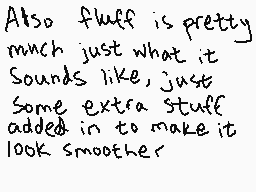 Also fluff is pretty
much just what it
sounds like, just
some extra stuff
added in to make it
look smoother